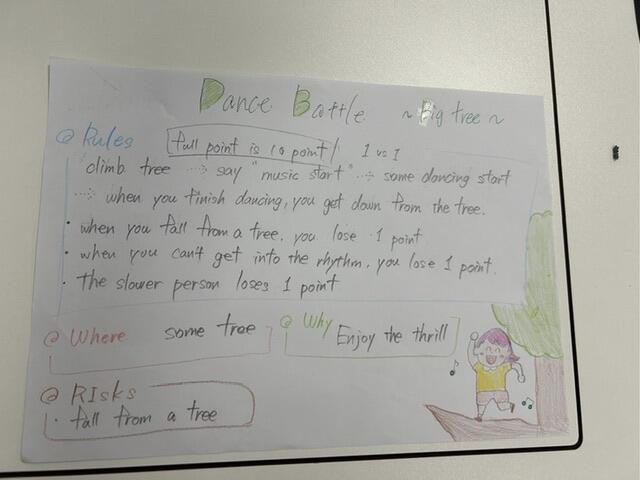 Dance Battle ~ Big tree ~
@ Rules
full point is 10 point! 1 vs 1
climb tree ···> say "music start" ···> same dancing start
···> when you finish dancing, you get down from the tree.
· when you fall from a tree, you lose 1 point
· when you can't get into the rhythm, you lose 1 point.
· The slower person loses 1 point
@ Where some tree
@ Why Enjoy the thrill
@ RIsks
· fall from a tree